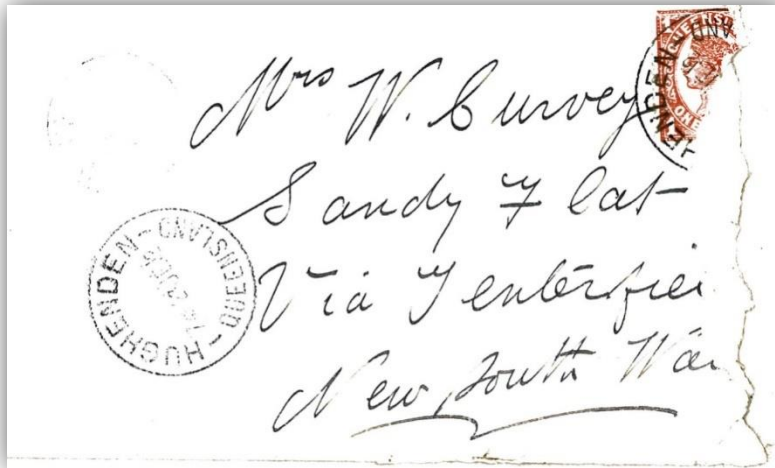 Mrs W. Curvey
Sandy Flat
Via Tenterfiel
New South Wa
HUGHENDEN - QUEENSLAND
QUEENS
ONE
HENDEN - 
AND